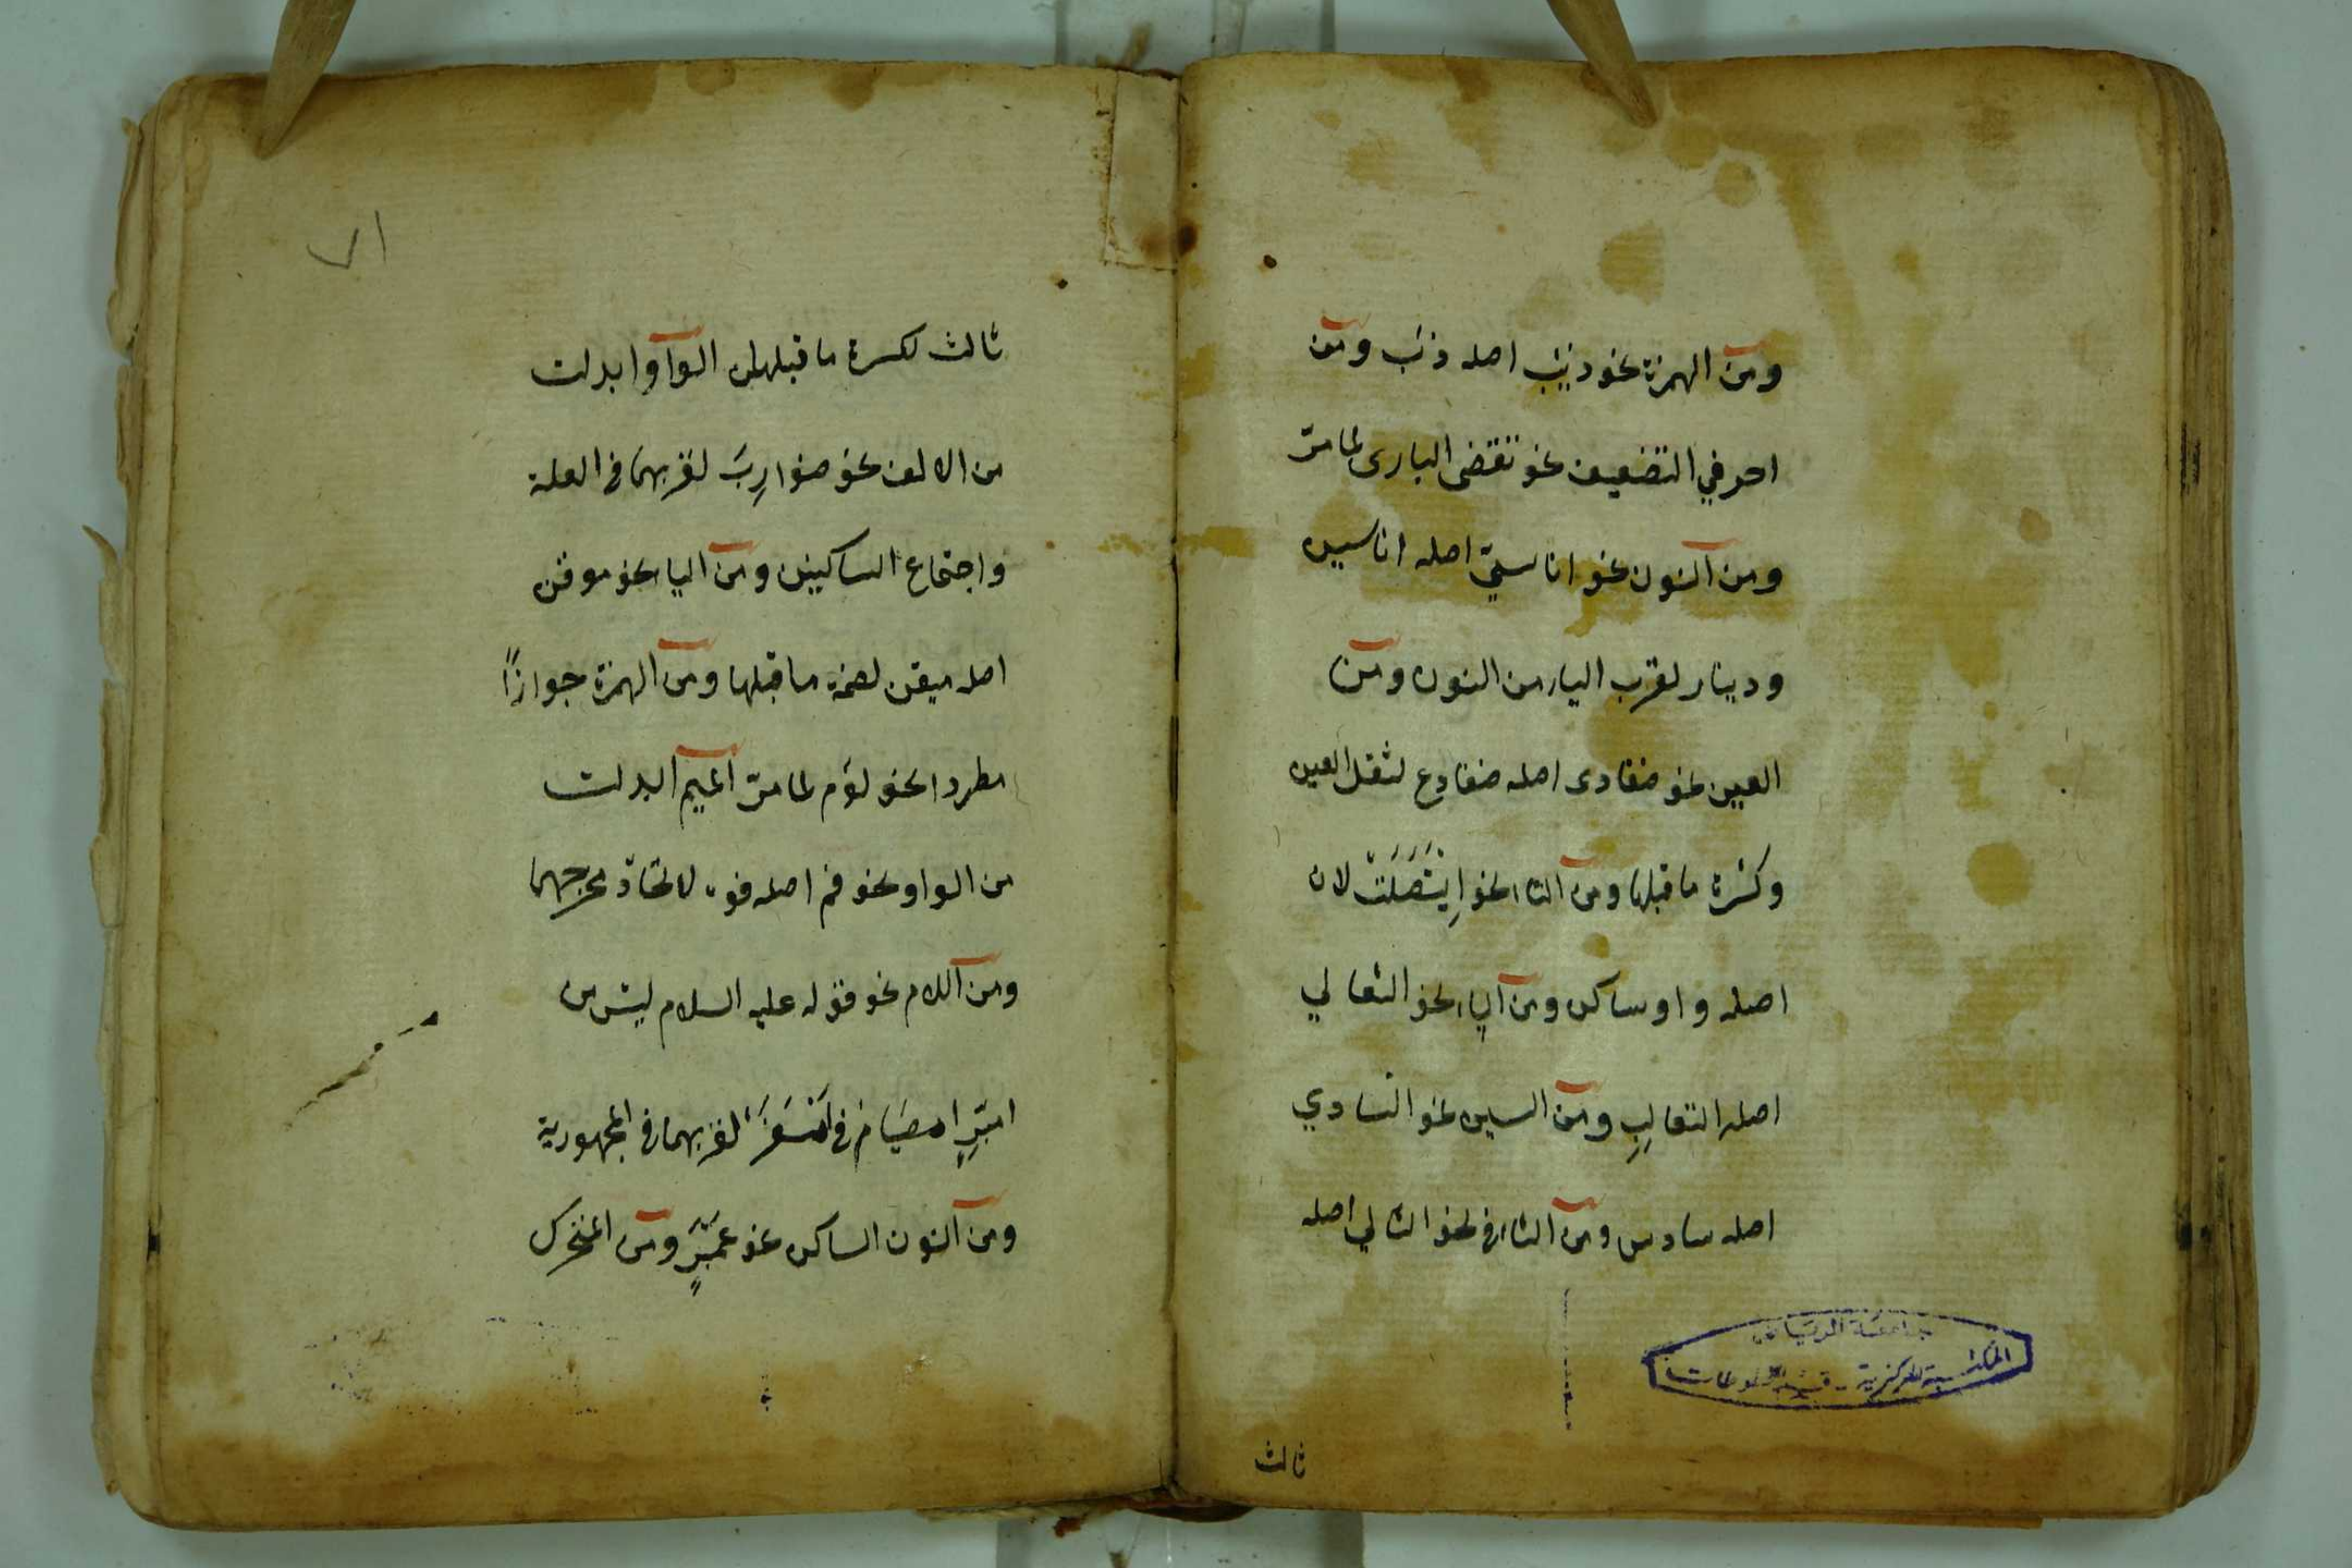 ومن الهمزة نحو ذيب اصله ذئب ومن
احرفي التضعيف نحو تقضى البازى لما مرّ
ومن النون نحو اناسيّ اصله اناسين
ودينار لقرب اليا من النون ومن
العين نحو ضفادى اصله ضفادع لثقل العين
وكسرة ما قبلها ومن التا نحو اِيتَصَلَتْ لان
اصله واو ساكن ومن اليا نحو الثعالي
اصله الثعالب ومن السين نحو السادي
اصله سادس ومن الثا في نحو الثالي اصله
ثالث
جامعة الرياض
المكتبة المركزية - قسم المخطوطات
٧١
ثالث لكسرة ما قبلهن الواو ابدلت
من الالف نحو ضوارِبَ لقربهما في العلة
واجتماع الساكنين ومن اليا نحو موقن
اصله ميقن لضمة ما قبلها ومن الهمزة جوازًا
مطردا نحو لؤم لما مرّ الميم ابدلت
من الواو نحو فم اصله فوه لاتحاد مخرجهما
ومن اللام نحو قوله عليه السلام ليس من
امبرّ امصيام في امسفر لقربهما في المجهورية
ومن النون الساكن نحو عمبرٍ ومن المتحرك